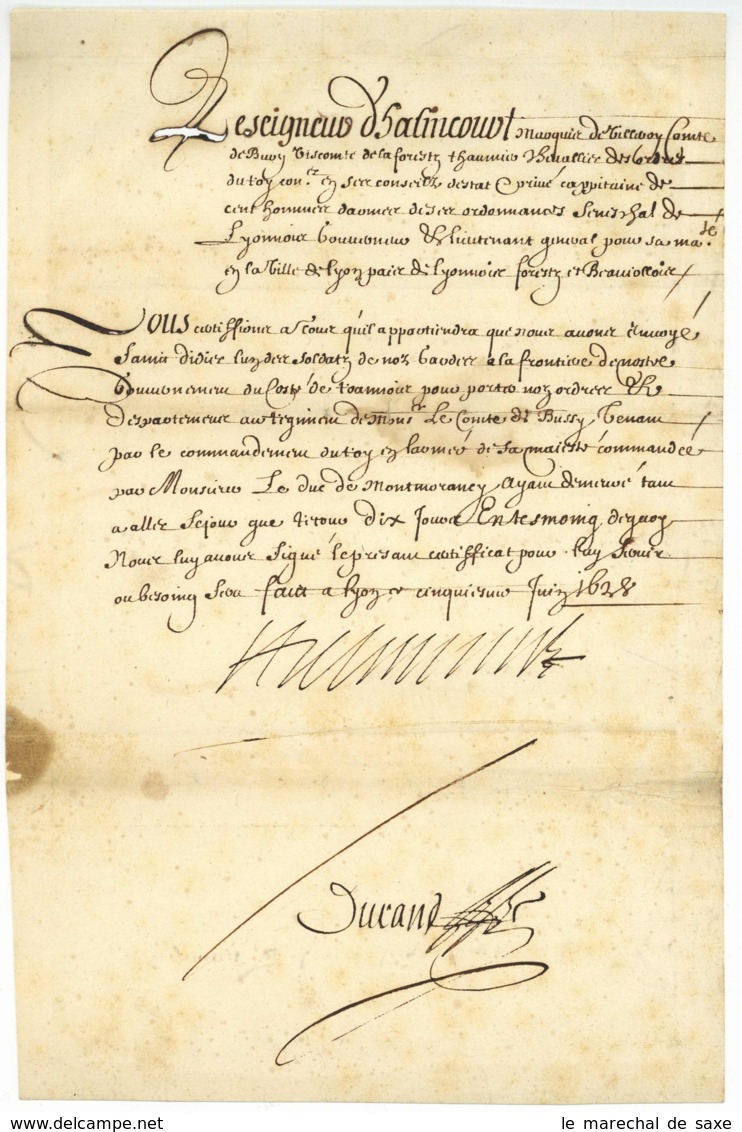 Le seigneur d'halincourt Marquis de Villeroy Comte
de Bury Viscomte de la forestz thaumier chevallier des ordres
du roy con.er en ses conseilz destat & privé cappitaine de
cent hommes darmes de ses ordonnances Seneschal de
Lyonnois Gouverneur & lieutenant general pour sa ma.te
en la Ville de lyon paies de lyonnois forestz et Beaujollois
Nous certiffions a tous quil appartiendra que nous avons envoyé
Sainct Didier lun des soldatz de noz gardes a la frontiere de nostre
Gouvernement du Costé de pour porter noz ordres &
despartemens au regiment de Mons.r Le Comte de Bussy Venant
par le commandement du roy en larmeé de sa maiesté commandeé
par Monsieur Le duc de Montmorancy Ayant demeuré tant
a aller Sejour que retour Dix jours En tesmoing dequoy
Nous luy avons signé le presant certifficat pour luy Servir
ou besoing sera faict a lyon ce cinquiesme Juin 1628
Durand
le marechal de saxe